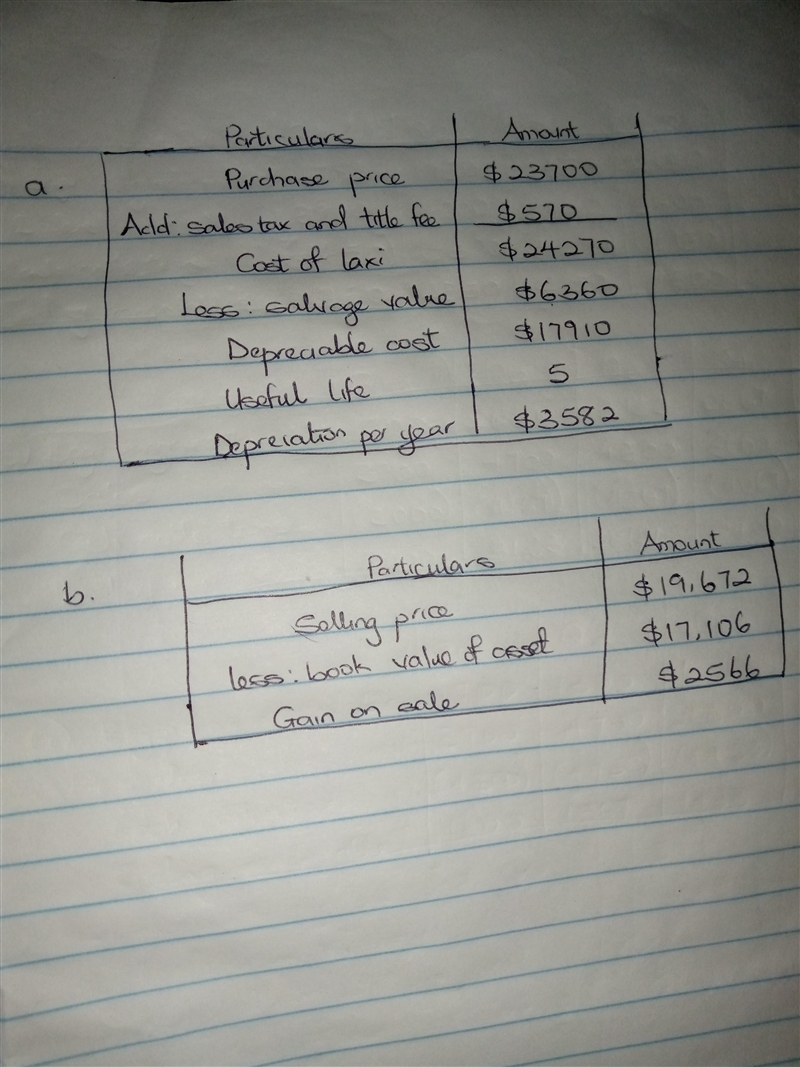 Particulars Amount
a. Purchase price $23700
Add: sales tax and title fee $570
Cost of taxi $24270
Less: salvage value $6360
Depreciable cost $17910
Useful life 5
Depreciation per year $3582
b. Particulars Amount
Selling price $19,672
less: book value of asset $17,106
Gain on sale $2566